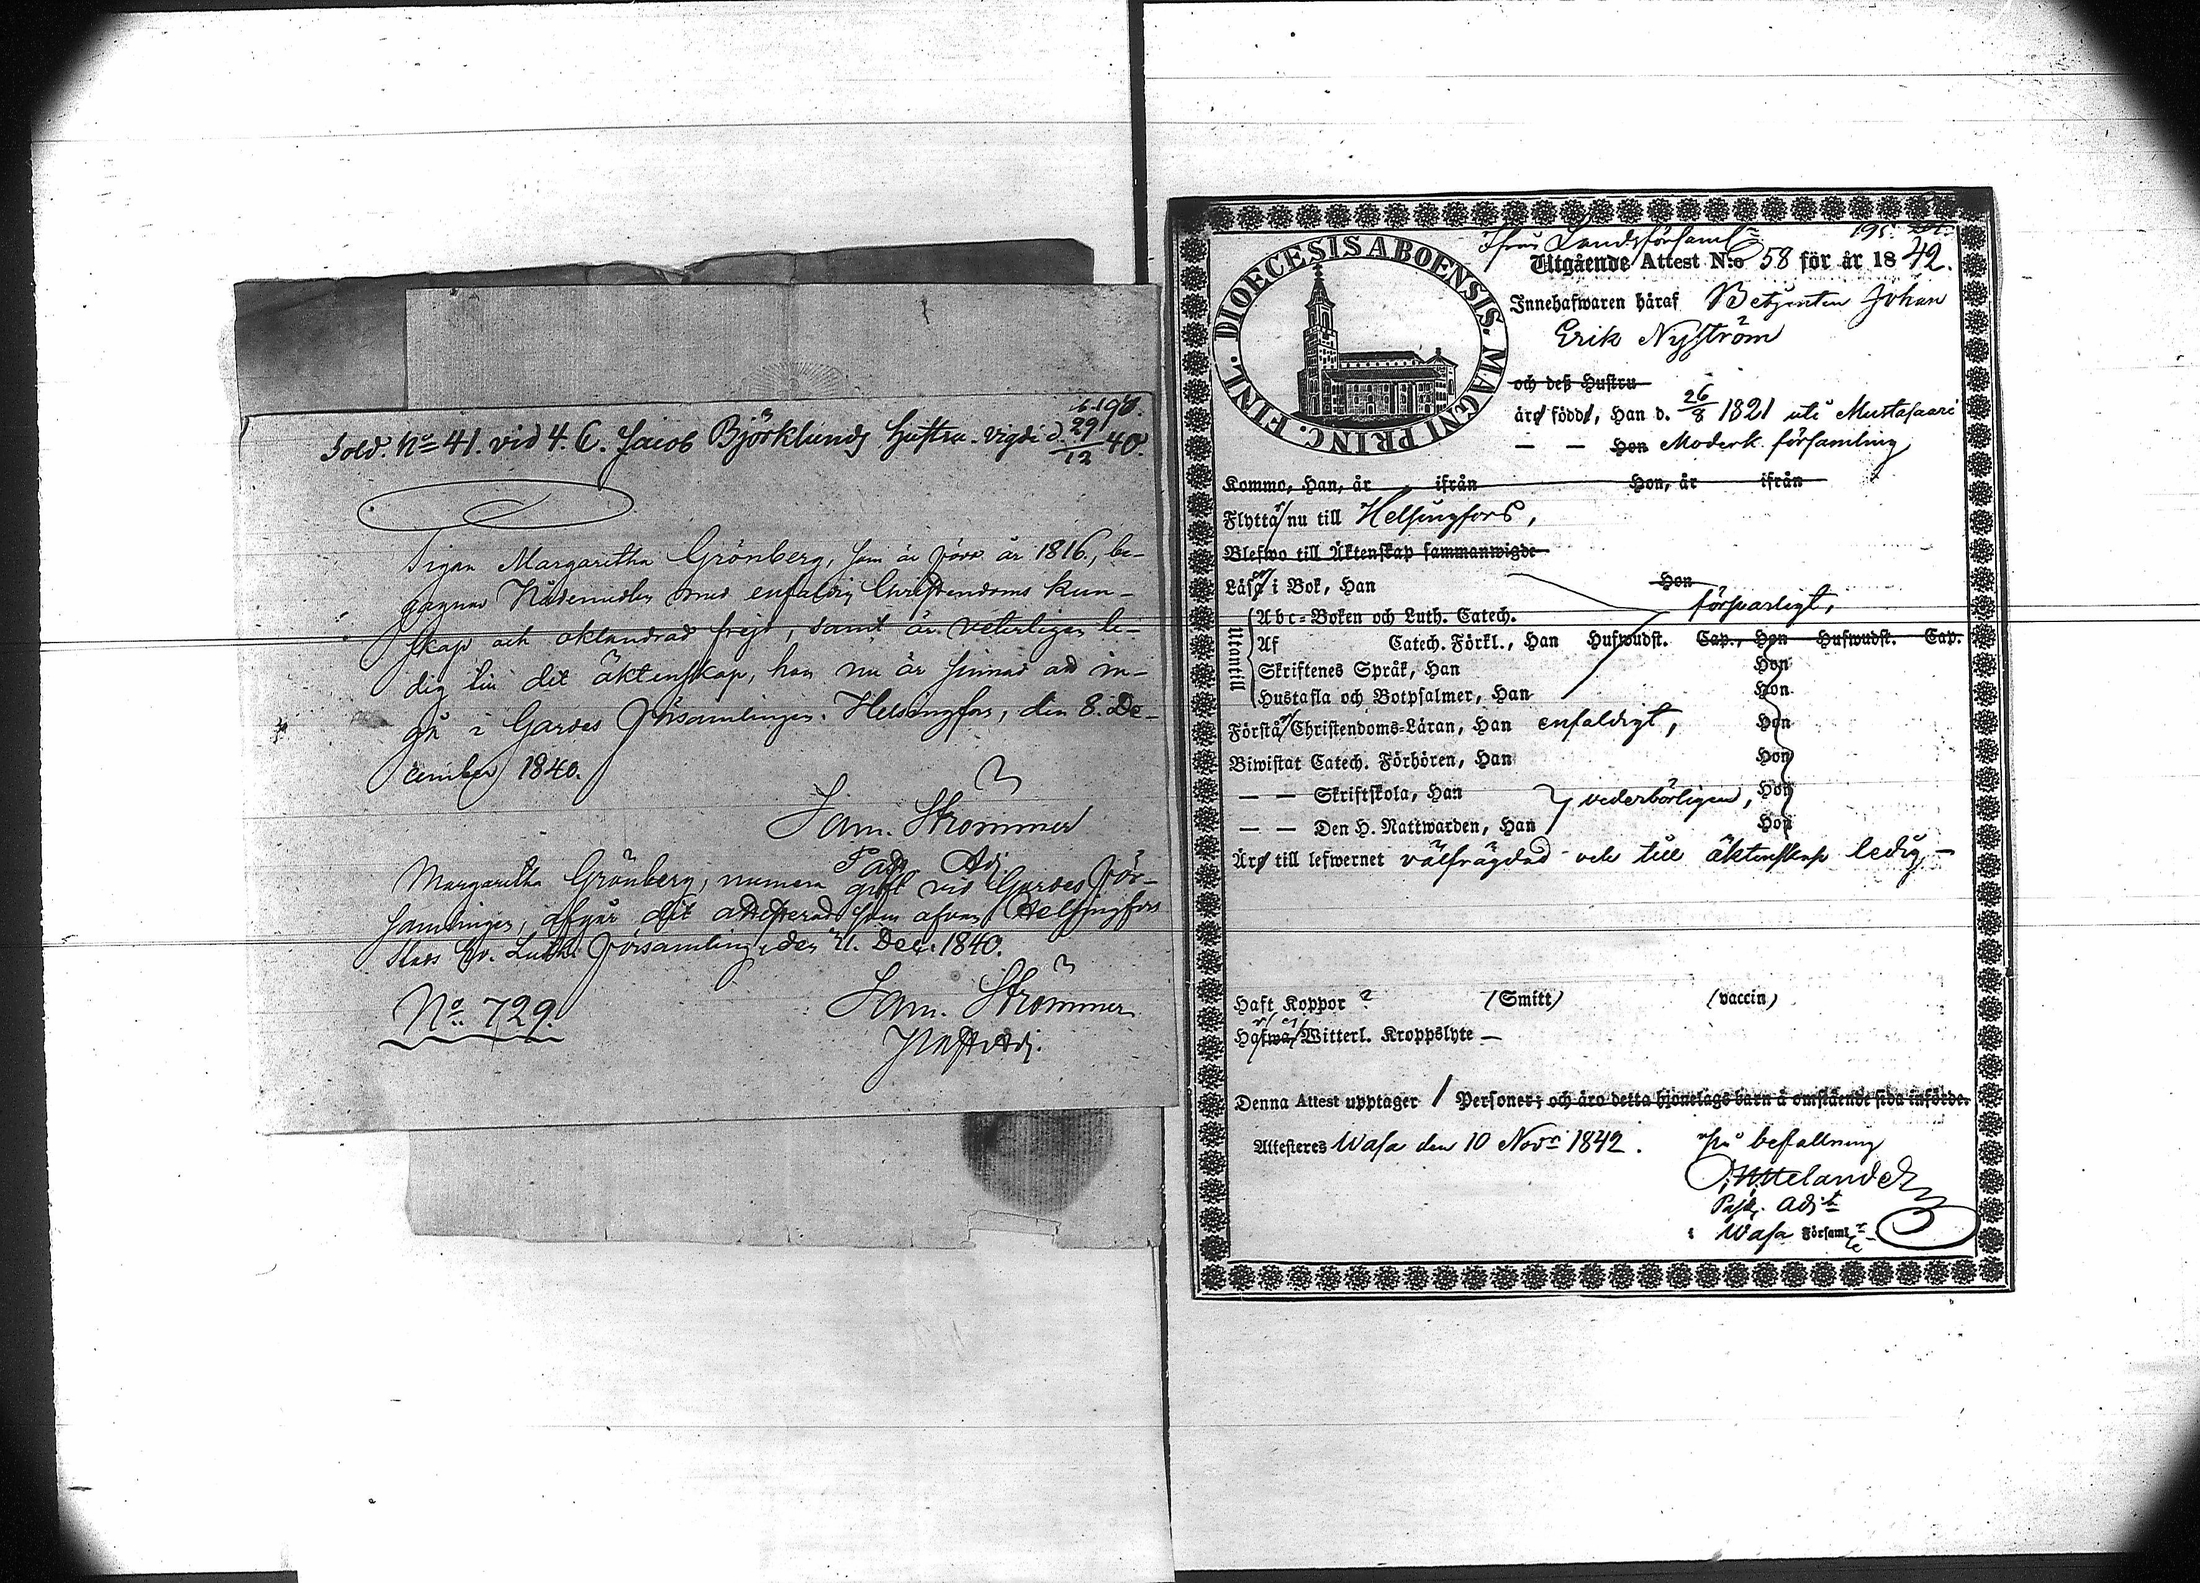 s. 198.
Sold. No 41. vid 4. C. Jacob Björklunds hustru. vigde d. 29/12 40.
Pigan Margaretha Grönberg, som är född år 1816, be-
gagnar Nådemedlen med enfaldig Christendoms kun-
skap och oklandrad frejd, samt är veterligen le-
dig till det äktenskap, hon nu är sinnad att in-
gå i Gardes Församlingen. Helsingfors, den 8. De-
cember 1840.
Sam. Strömmer
Past. Adj.
Margaretha Grönberg, numera gift vid Gardes För-
samlingen, afgår dit attesterad som ofvan, Helsingfors
Stads Ev. Luth. Församling, den 21. Dec. 1840.
No. 729.
Sam. Strömmer
Past. Adj.
DIOECESIS ABOENSIS. MAGNI PRINC. FINL.
ifrån Landsförsaml
195.
Utgående Attest N:o 58 för år 1842.
Innehafwaren häraf Betjenten Johan
Erik Nyström
och deß Hustru
äro född, Han d. 26/8 1821 uti Mustasaari
— — Hon Moderk. församling
Kommo, Han, år ifrån Hon, år ifrån
Flyttar nu till Helsingfors,
Blefwo till Äktenskap sammanwigde
Läser i Bok, Han Hon
försvarligt,
Utantill
Abc-Boken och Luth. Catech.
Af Catech. Förkl., Han Hufwudst. Cap., Hon Hufwudst. Cap.
Skriftenes Språk, Han Hon
Hustafla och Botpsalmer, Han Hon
Förstår Christendoms-Läran, Han enfaldigt, Hon
Biwistat Catech. Förhören, Han Hon
— — Skriftskola, Han vederbörligen, Hon
— — Den H. Nattwarden, Han Hon
Är till lefwernet välfrägdad och till äktenskap ledig —
Haft Koppor ? (Smitt) (vaccin)
Har ej Witterl. Kroppslyte —
Denna Attest upptager 1 Personer; och äro detta hjonelags barn å omstående sida införde.
Attesteres Wasa den 10 Novr 1842.
På befallning
Past. Adjt
i Wasa Församl